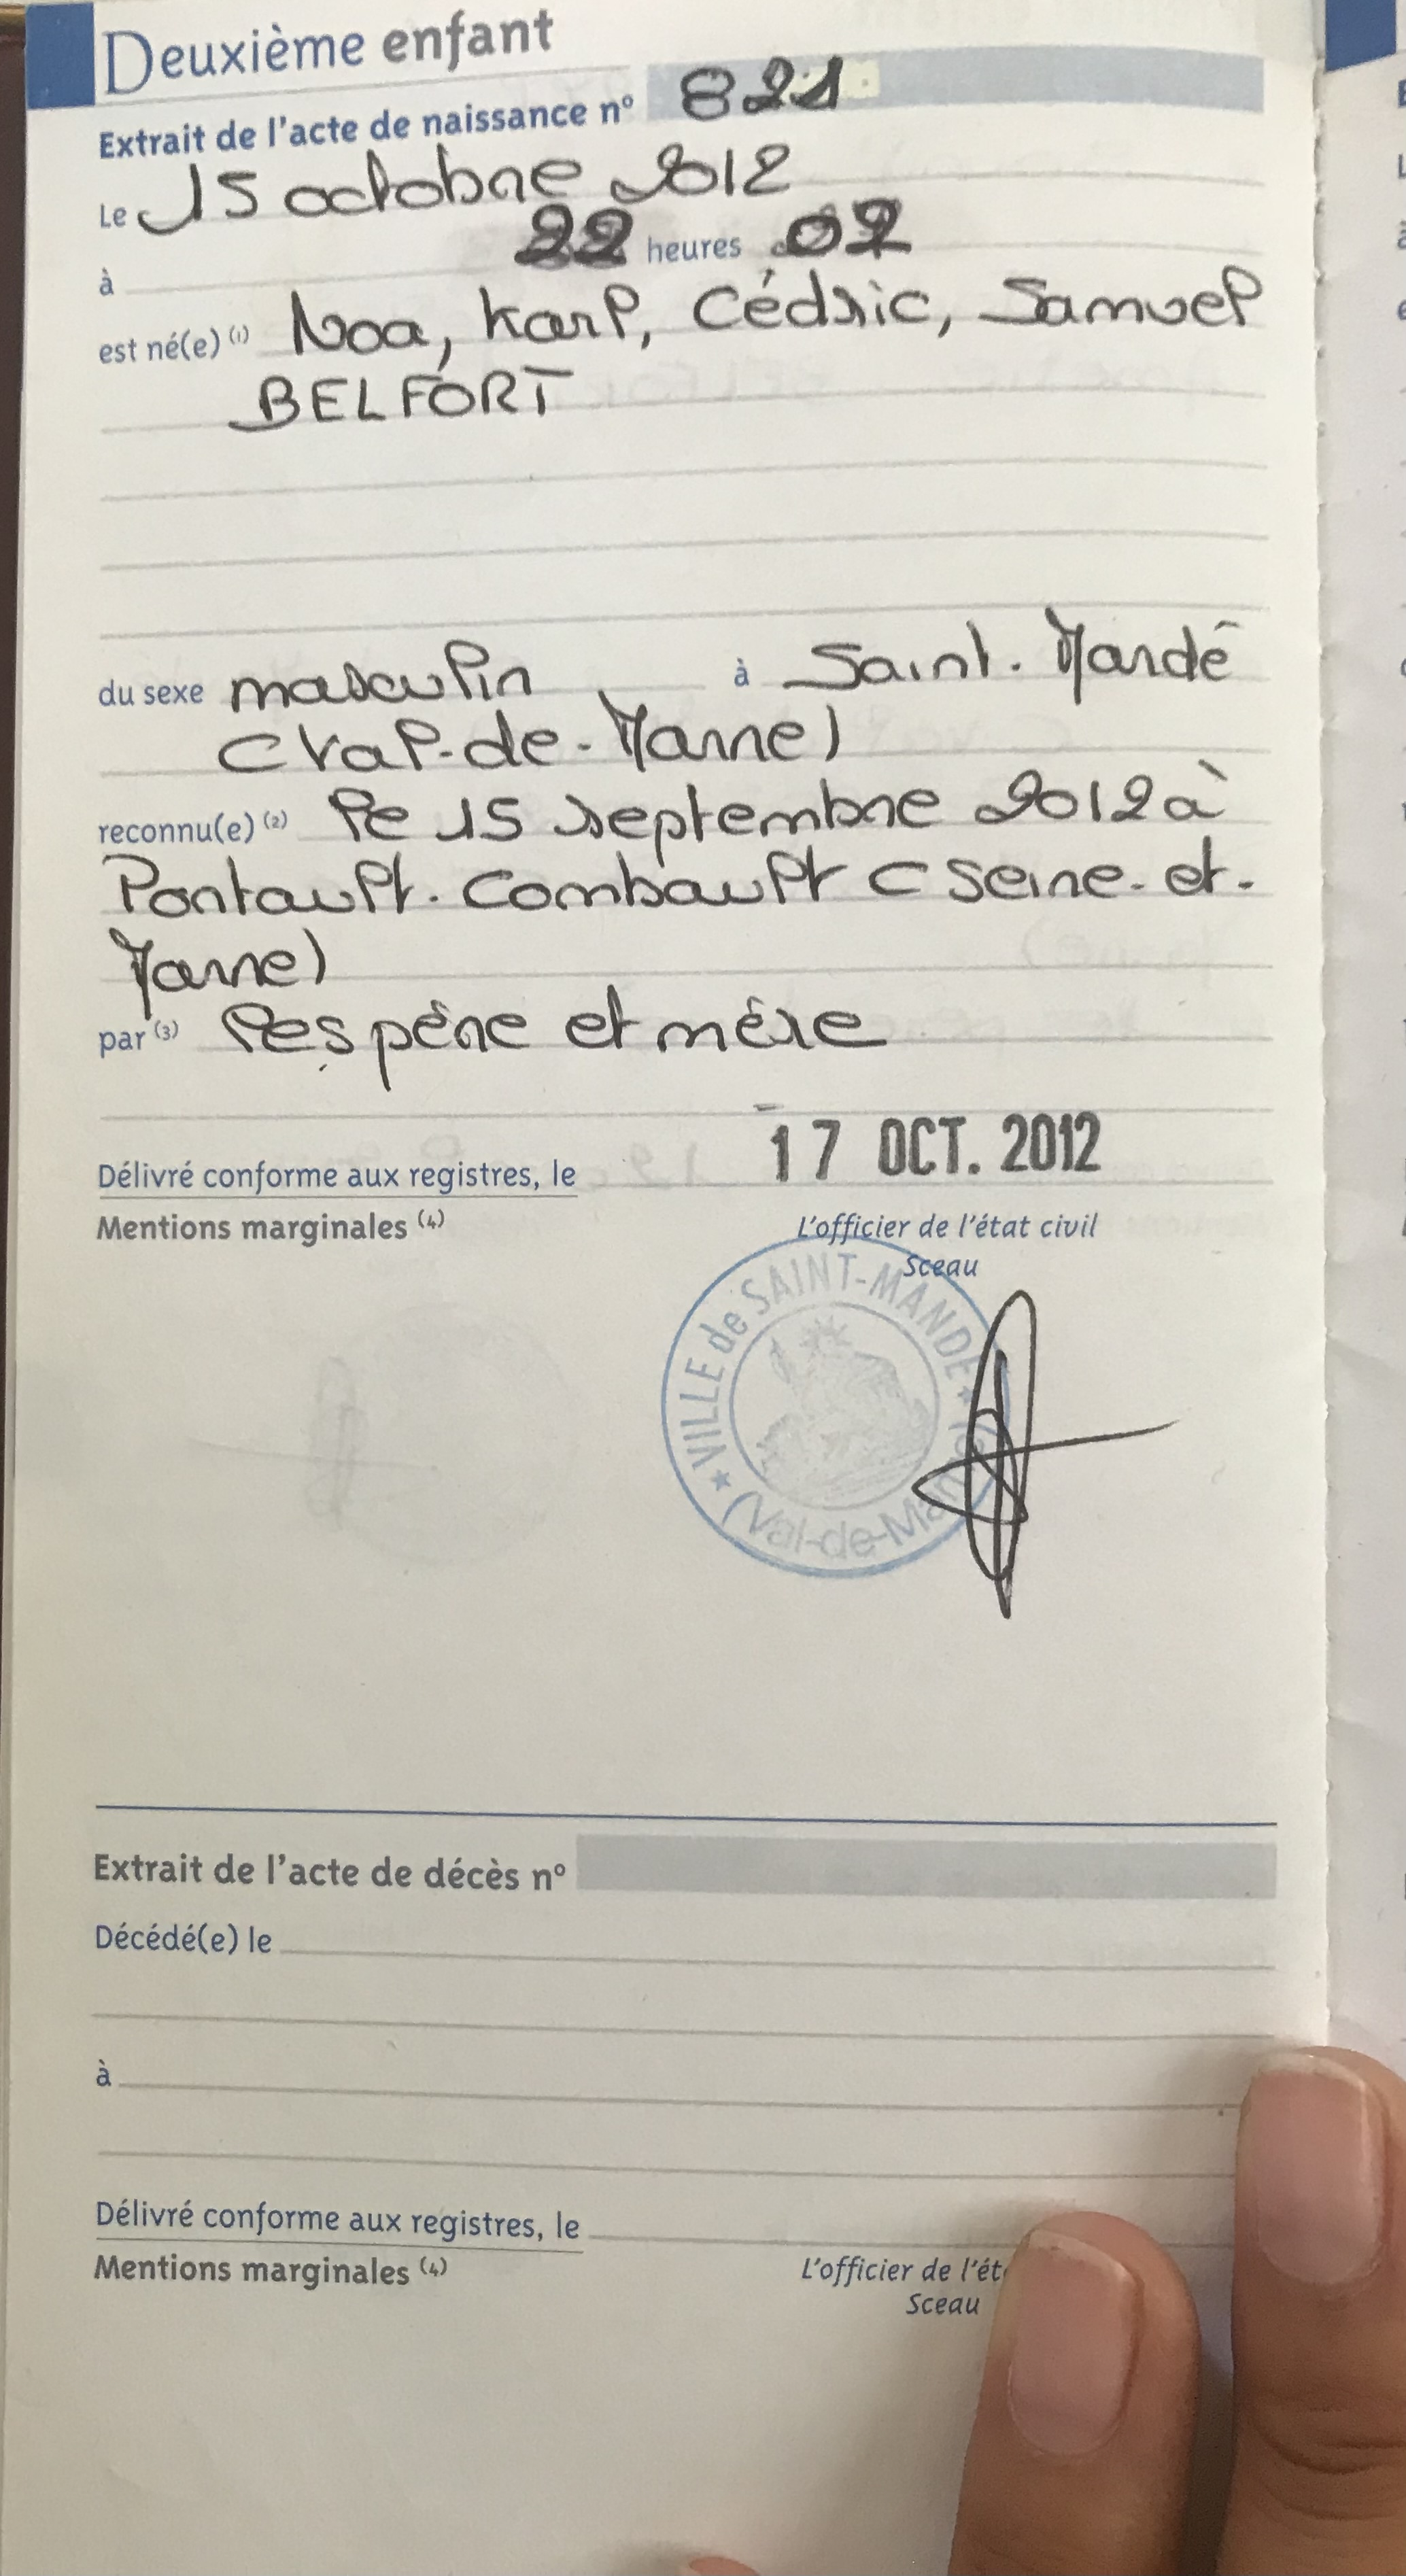 Deuxième enfant
Extrait de l'acte de naissance n° 821
Le 15 octobre 2012
à 22 heures 02
est né(e) (1) Noa, Karl, Cédric, Samuel
BELFORT
du sexe masculin à Saint-Mandé
(Val-de-Marne)
reconnu(e) (2) le 15 septembre 2012 à
Pontault-Combault (Seine-et-
Marne)
par (3) les père et mère
17 OCT. 2012
Délivré conforme aux registres, le
Mentions marginales (4) L'officier de l'état civil
Sceau
VILLE de SAINT-MANDE
(Val-de-Marne)
Extrait de l'acte de décès n°
Décédé(e) le
à
Délivré conforme aux registres, le
Mentions marginales (4) L'officier de l'ét
Sceau